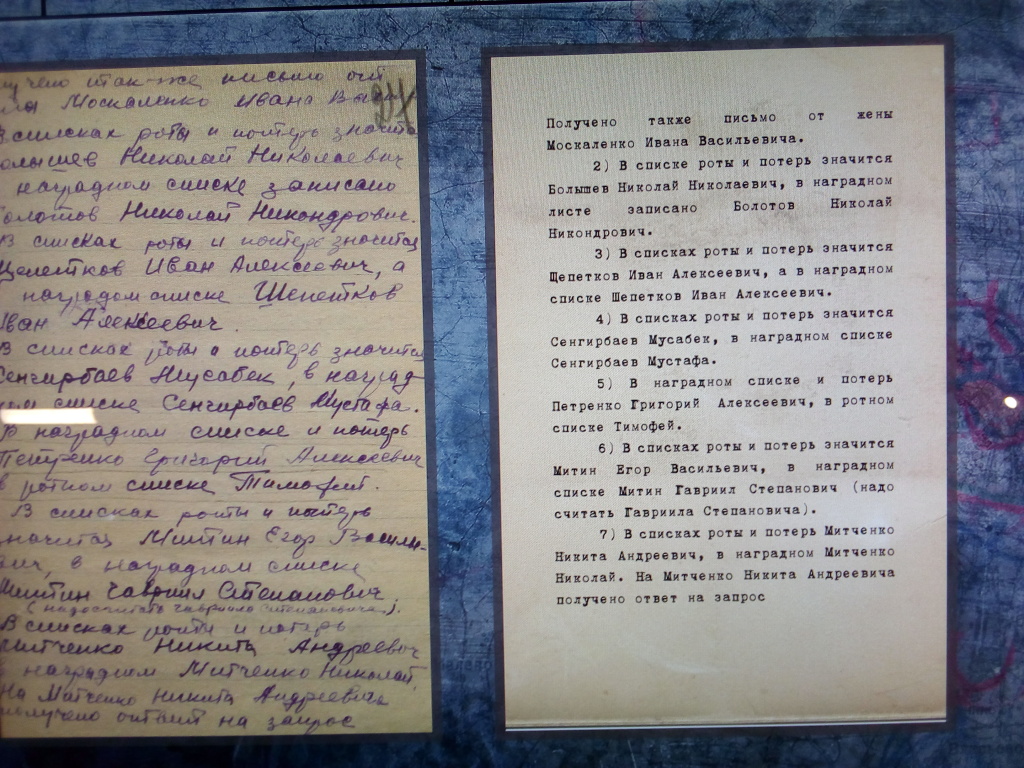 также письмо от
Москаленко Ивана
27
В списках роты и потерь
Николай Николаевич
наградном списке записано
Николай Никондрович.
В списках роты и потерь значится
Щепетков Иван Алексеевич, а
наградом списке Шепетков
Иван Алексеевич.
В списках роты и потерь значится
Сенгирбаев Мусабек, в наград
списке Сенгирбаев Мустафа.
В наградном списке и потерь
Петренко Григорий Алексеевич
в ротном списке Тимофей.
В списках роты и потерь
значится Митин Егор Василь-
евич, в наградном списке
Митин Гавриил Степанович
(надо считать Гавриила Степановича).
В списках роты и потерь
Митченко Никита Андреевич
в наградном Митченко Николай.
На Митченко Никита Андреевича
получено ответ на запрос
Получено также письмо от жены
Москаленко Ивана Васильевича.
2) В списке роты и потерь значится
Болышев Николай Николаевич, в наградном
листе записано Болотов Николай
Никондрович.
3) В списках роты и потерь значится
Щепетков Иван Алексеевич, а в наградном
списке Шепетков Иван Алексеевич.
4) В списках роты и потерь значится
Сенгирбаев Мусабек, в наградном списке
Сенгирбаев Мустафа.
5) В наградном списке и потерь
Петренко Григорий Алексеевич, в ротном
списке Тимофей.
6) В списках роты и потерь значится
Митин Егор Васильевич, в наградном
списке Митин Гавриил Степанович (надо
считать Гавриила Степановича).
7) В списках роты и потерь Митченко
Никита Андреевич, в наградном Митченко
Николай. На Митченко Никита Андреевича
получено ответ на запрос